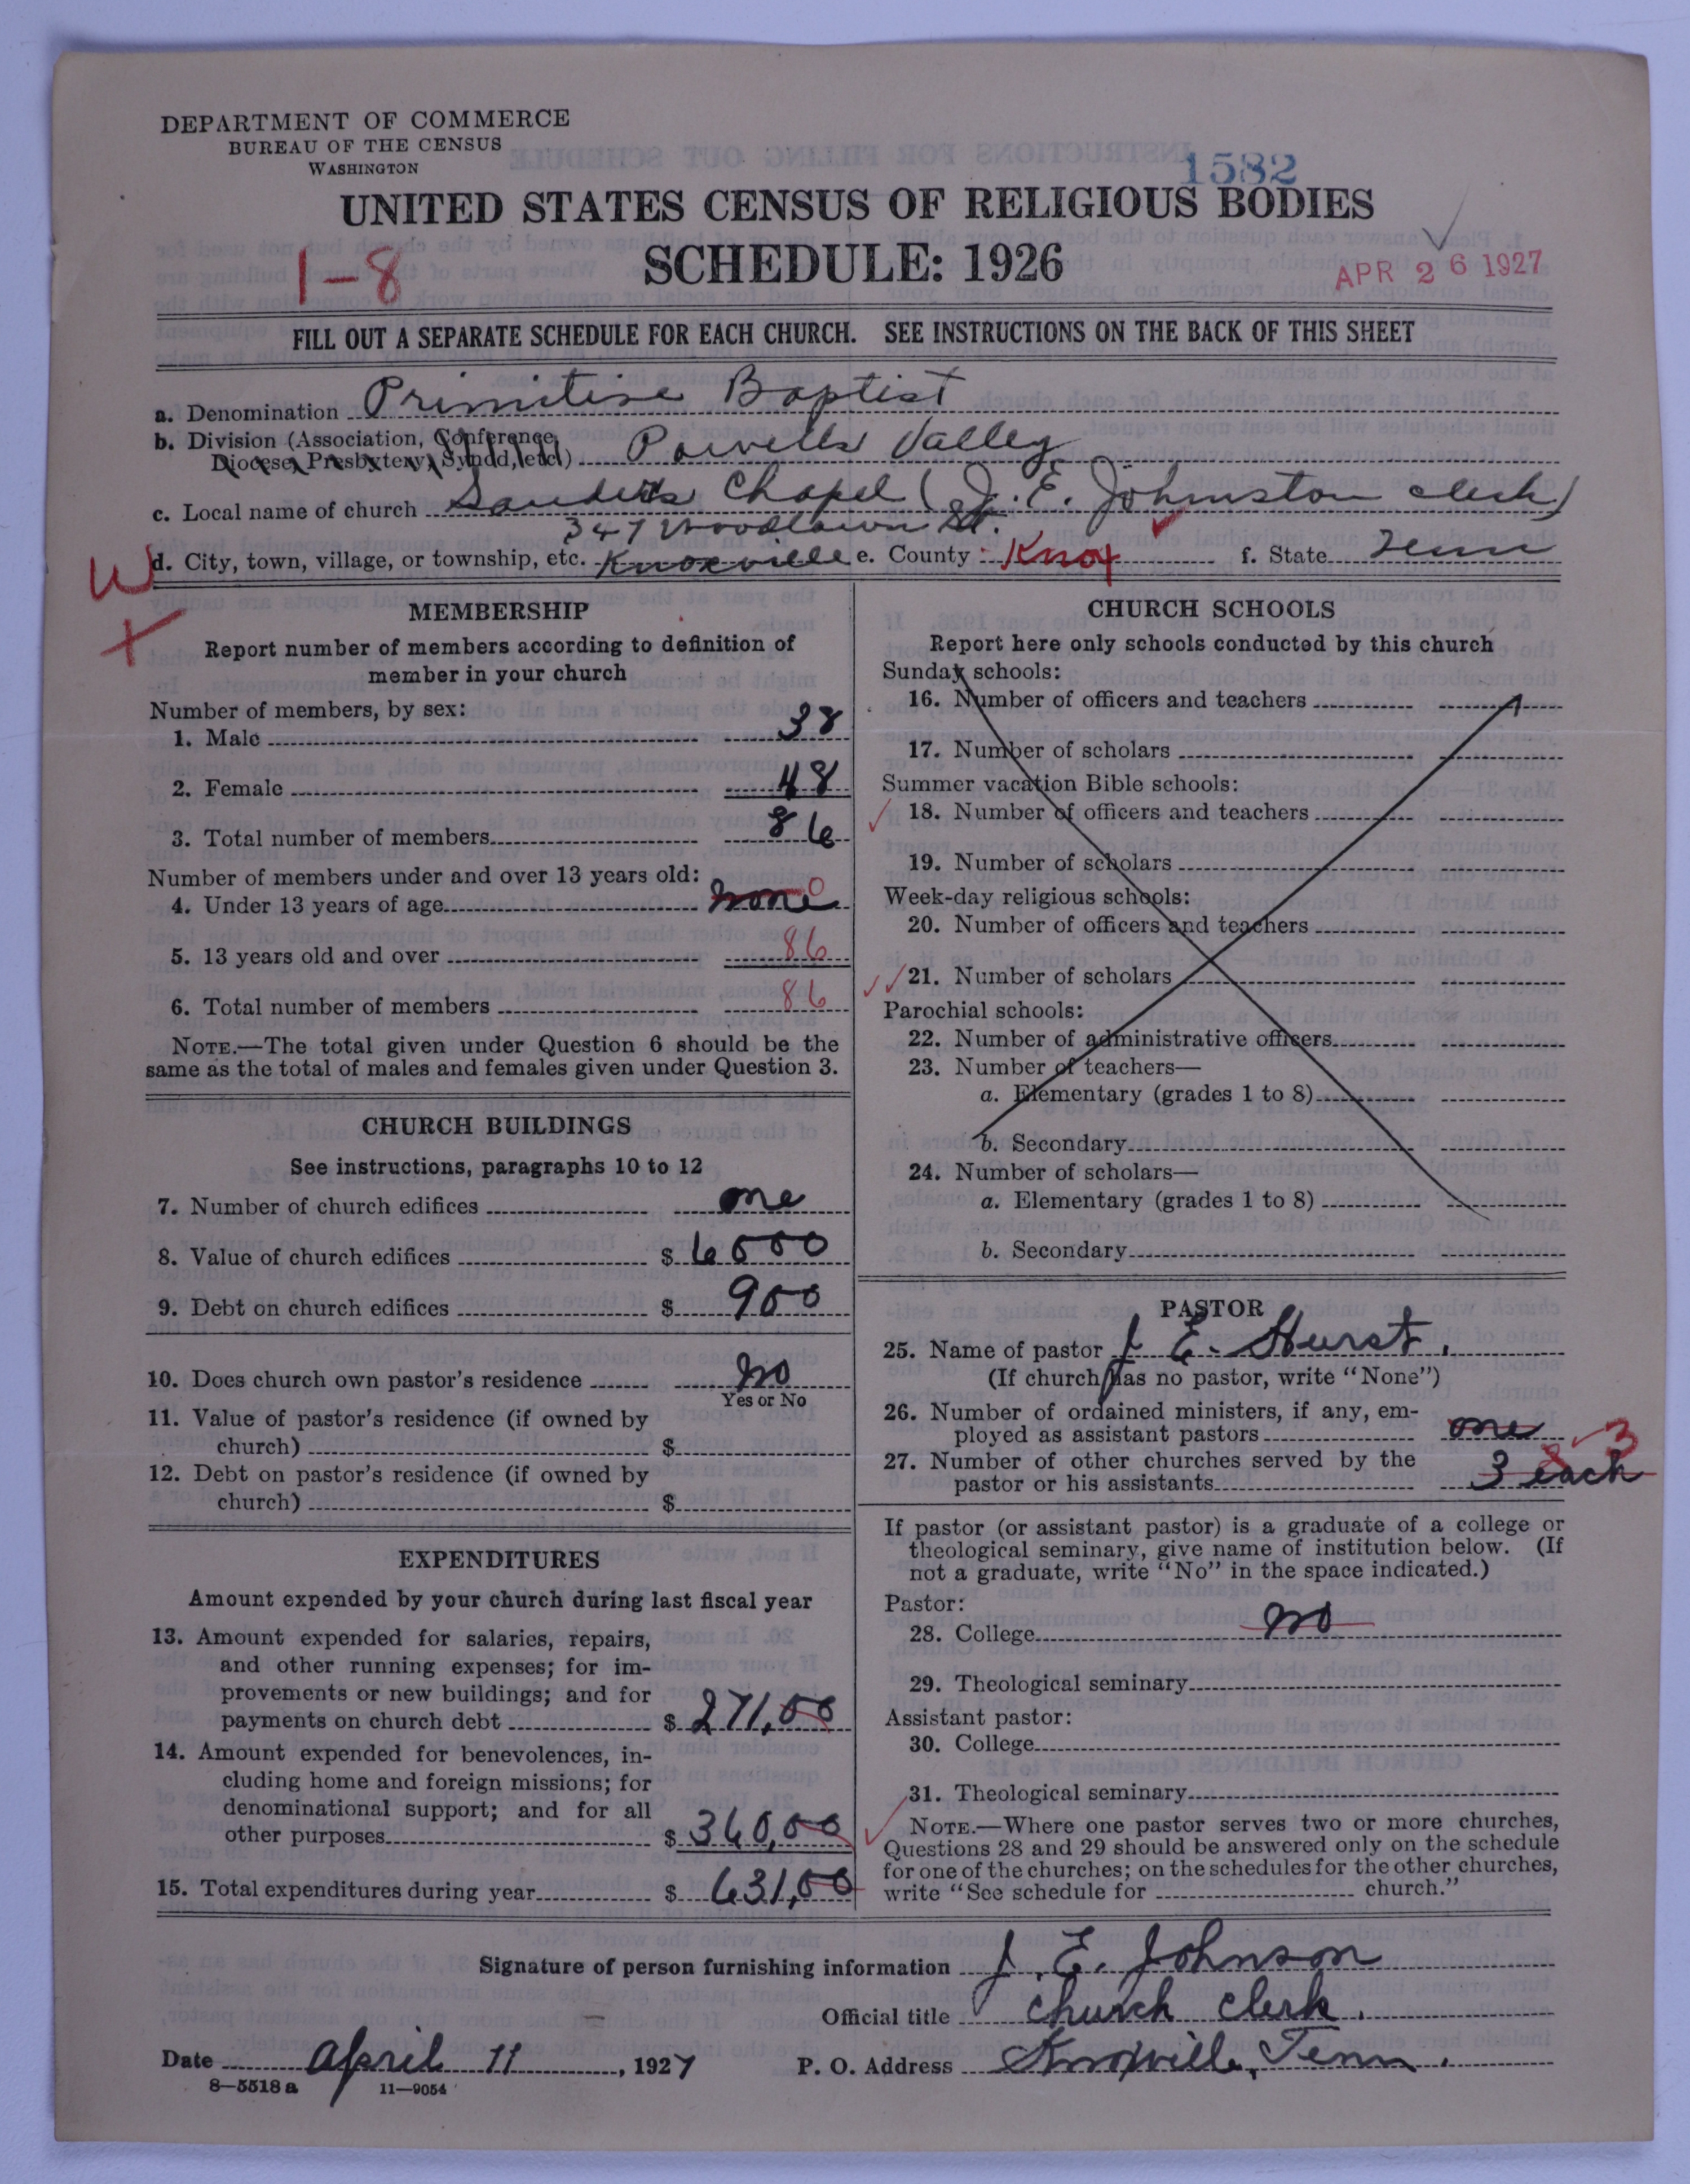 DEPARTMENT OF COMMERCE
BUREAU OF THE CENSUS
WASHINGTON
1582
UNITED STATES CENSUS OF RELIGIOUS BODIES
SCHEDULE: 1926
1-8
APR 26 1927
FILL OUT A SEPARATE SCHEDULE FOR EACH CHURCH. SEE INSTRUCTIONS ON THE BACK OF THIS SHEET
a. Denomination Primitive Baptist
b. Division (Association, Conference,
Diocese, Presbytery, Synod, etc.) Powells Valley
c. Local name of church Sanders Chapel (J. E. Johnston clerk)
347 Woodlawn St.
d. City, town, village, or township, etc. Knoxville e. County Knox f. State Tenn
W
X
MEMBERSHIP
Report number of members according to definition of
member in your church
Number of members, by sex:
1. Male 38
2. Female 48
3. Total number of members 86
Number of members under and over 13 years old:
4. Under 13 years of age none 0
5. 13 years old and over 86
6. Total number of members 86
NOTE.—The total given under Question 6 should be the
same as the total of males and females given under Question 3.
CHURCH BUILDINGS
See instructions, paragraphs 10 to 12
7. Number of church edifices one
8. Value of church edifices $ 6000
9. Debt on church edifices $ 900
10. Does church own pastor's residence no
Yes or No
11. Value of pastor's residence (if owned by
church) $
12. Debt on pastor's residence (if owned by
church) $
EXPENDITURES
Amount expended by your church during last fiscal year
13. Amount expended for salaries, repairs,
and other running expenses; for im-
provements or new buildings; and for
payments on church debt $ 271,00
14. Amount expended for benevolences, in-
cluding home and foreign missions; for
denominational support; and for all
other purposes $ 360,00
15. Total expenditures during year $ 631,00
CHURCH SCHOOLS
Report here only schools conducted by this church
Sunday schools:
16. Number of officers and teachers
17. Number of scholars
Summer vacation Bible schools:
18. Number of officers and teachers
19. Number of scholars
Week-day religious schools:
20. Number of officers and teachers
21. Number of scholars
Parochial schools:
22. Number of administrative officers
23. Number of teachers—
a. Elementary (grades 1 to 8)
b. Secondary
24. Number of scholars—
a. Elementary (grades 1 to 8)
b. Secondary
PASTOR
25. Name of pastor J E. Hurst.
(If church has no pastor, write "None")
26. Number of ordained ministers, if any, em-
ployed as assistant pastors one
27. Number of other churches served by the
pastor or his assistants 3 each 3
If pastor (or assistant pastor) is a graduate of a college or
theological seminary, give name of institution below. (If
not a graduate, write "No" in the space indicated.)
Pastor:
28. College no
29. Theological seminary
Assistant pastor:
30. College
31. Theological seminary
NOTE.—Where one pastor serves two or more churches,
Questions 28 and 29 should be answered only on the schedule
for one of the churches; on the schedules for the other churches,
write "See schedule for church."
Signature of person furnishing information J. E. Johnson
Official title church clerk.
Date April 11, 1927 P. O. Address Knoxville, Tenn.
8—5518 a 11—9054